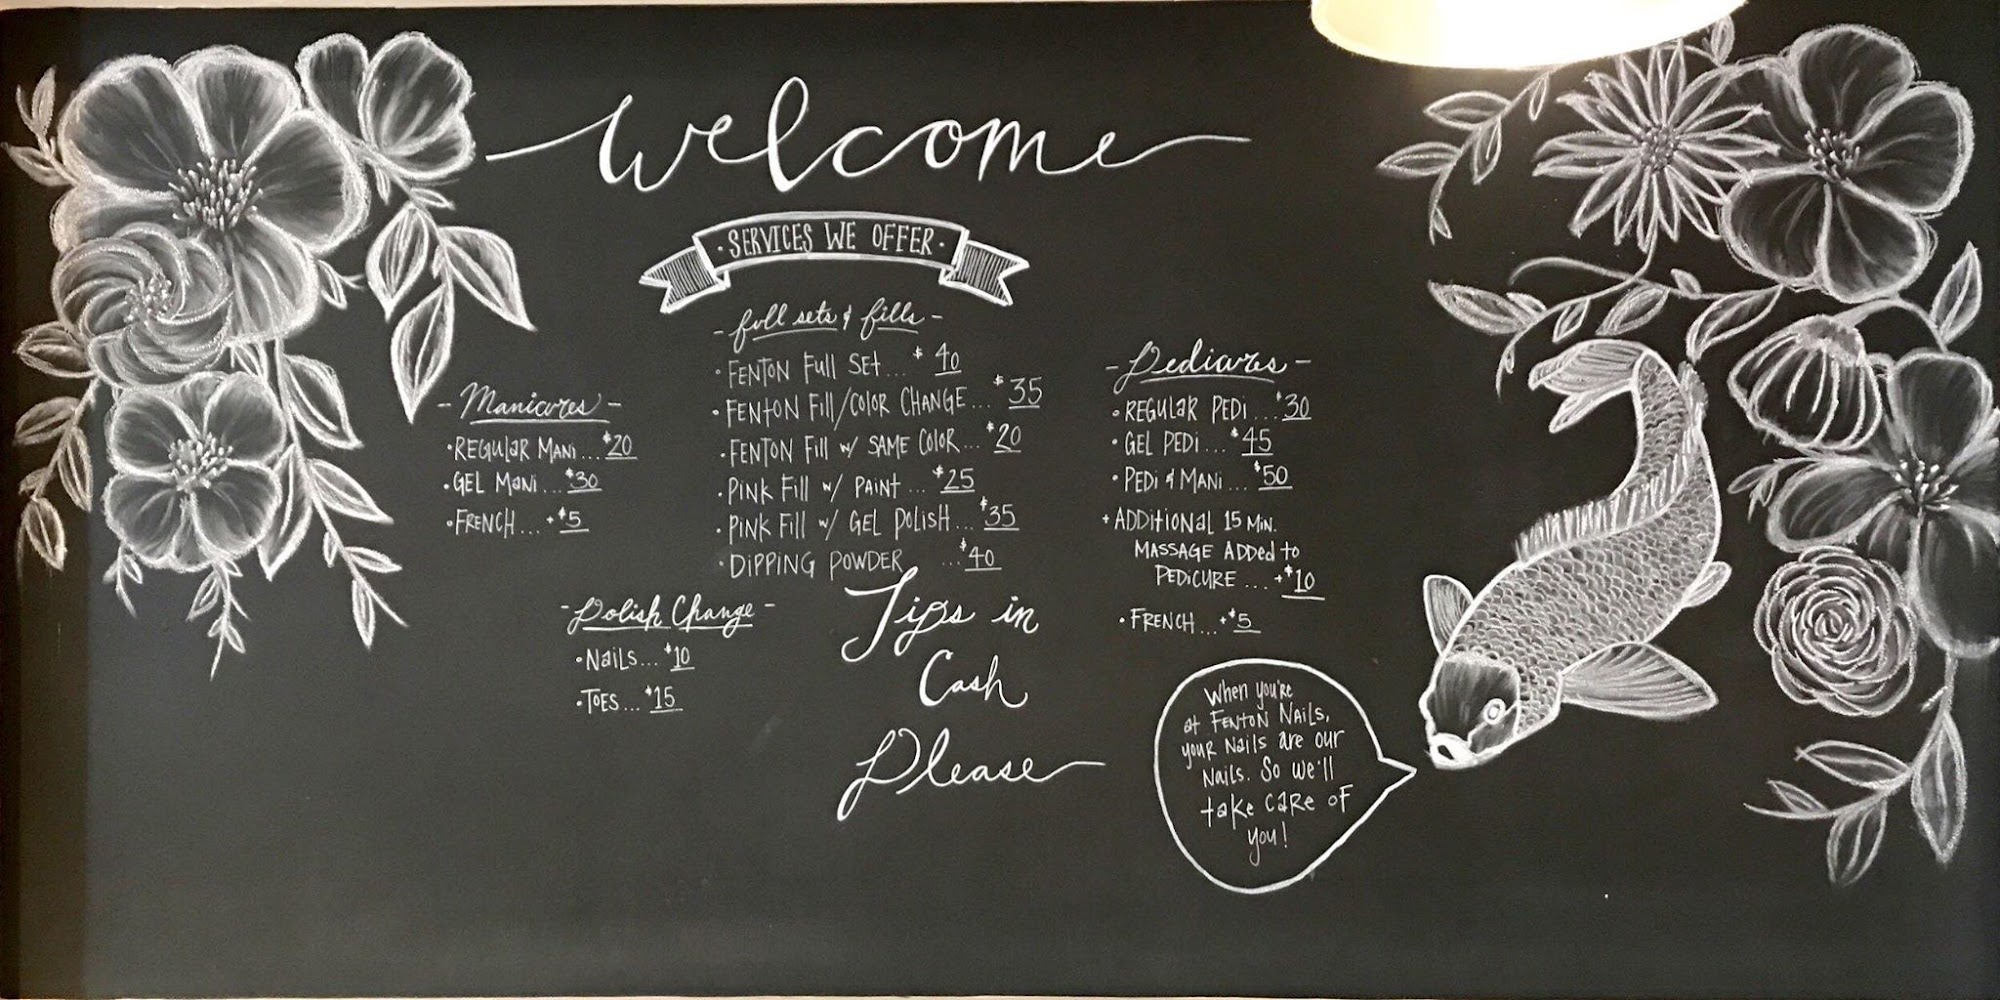 welcome
· SERVICES WE OFFER ·
- Manicures -
· REGULAR MANI... $20
· GEL MANI... $30
· FRENCH... +$5
- full sets & fills -
· FENTON FULL SET... $40
· FENTON FILL/COLOR CHANGE... $35
· FENTON FILL W/ SAME COLOR... $20
· PINK FILL W/ PAINT ... $25
· PINK FILL W/ GEL POLISH... $35
· DIPPING POWDER ...$40
- Pedicures -
· REGULAR PEDI... $30
· GEL PEDI... $45
· PEDI & MANI... $50
+ ADDITIONAL 15 MIN.
MASSAGE ADDED TO
PEDICURE ... +$10
· FRENCH... +$5
- Polish Change -
· NAILS... $10
· TOES... $15
Tips in
Cash
Please
When you're
at FENTON NAILS,
your Nails are our
Nails. So we'll
take care of
you!